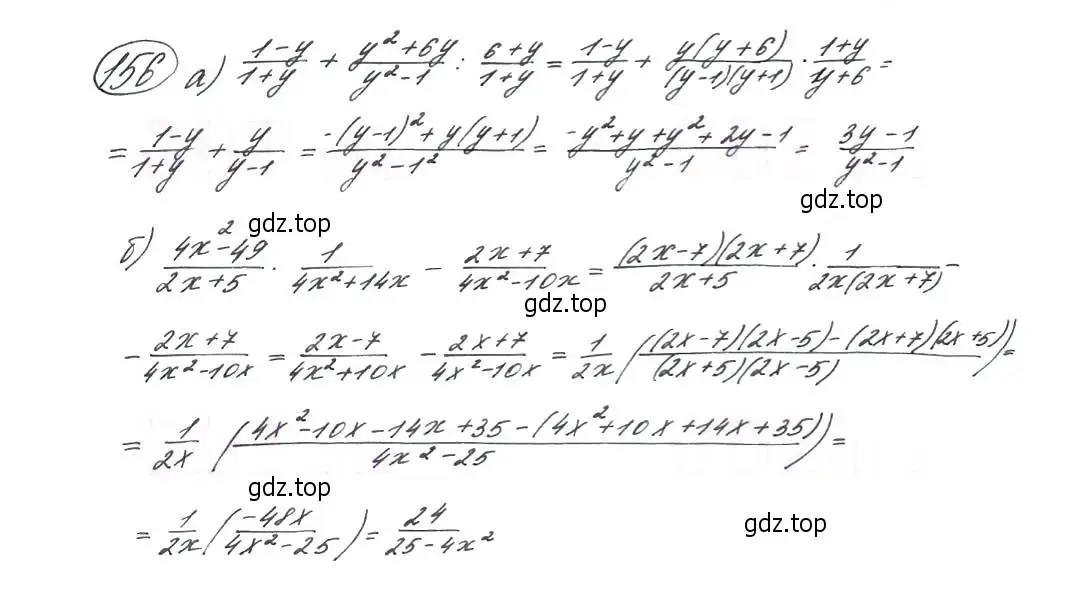 156 а) (1-y)/(1+y) + (y²+6y)/(y²-1) : (6+y)/(1+y) = (1-y)/(1+y) + (y(y+6))/((y-1)(y+1)) · (1+y)/(y+6) =
= (1-y)/(1+y) + y/(y-1) = (-(y-1)²+y(y+1))/(y²-1²) = (-y²+y+y²+2y-1)/(y²-1) = (3y-1)/(y²-1)
gdz.top
gdz.top
б) (4x²-49)/(2x+5) · 1/(4x²+14x) - (2x+7)/(4x²-10x) = ((2x-7)(2x+7))/(2x+5) · 1/(2x(2x+7)) -
gdz.top
- (2x+7)/(4x²-10x) = (2x-7)/(4x²+10x) - (2x+7)/(4x²-10x) = 1/(2x) (((2x-7)(2x-5)-(2x+7)(2x+5))/((2x+5)(2x-5))) =
= 1/(2x) ((4x²-10x-14x+35-(4x²+10x+14x+35))/(4x²-25)) =
gdz.top
= 1/(2x) ((-48x)/(4x²-25)) = 24/(25-4x²)
gdz.top